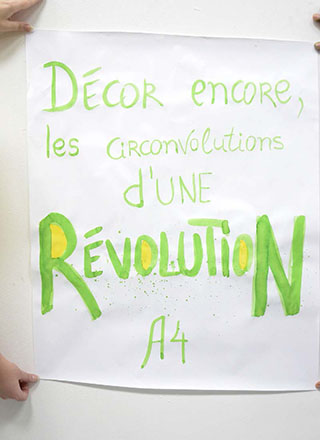 DÉCOR encore,
les circonvolutions
d'UNE
RÉVOLUTION
A4